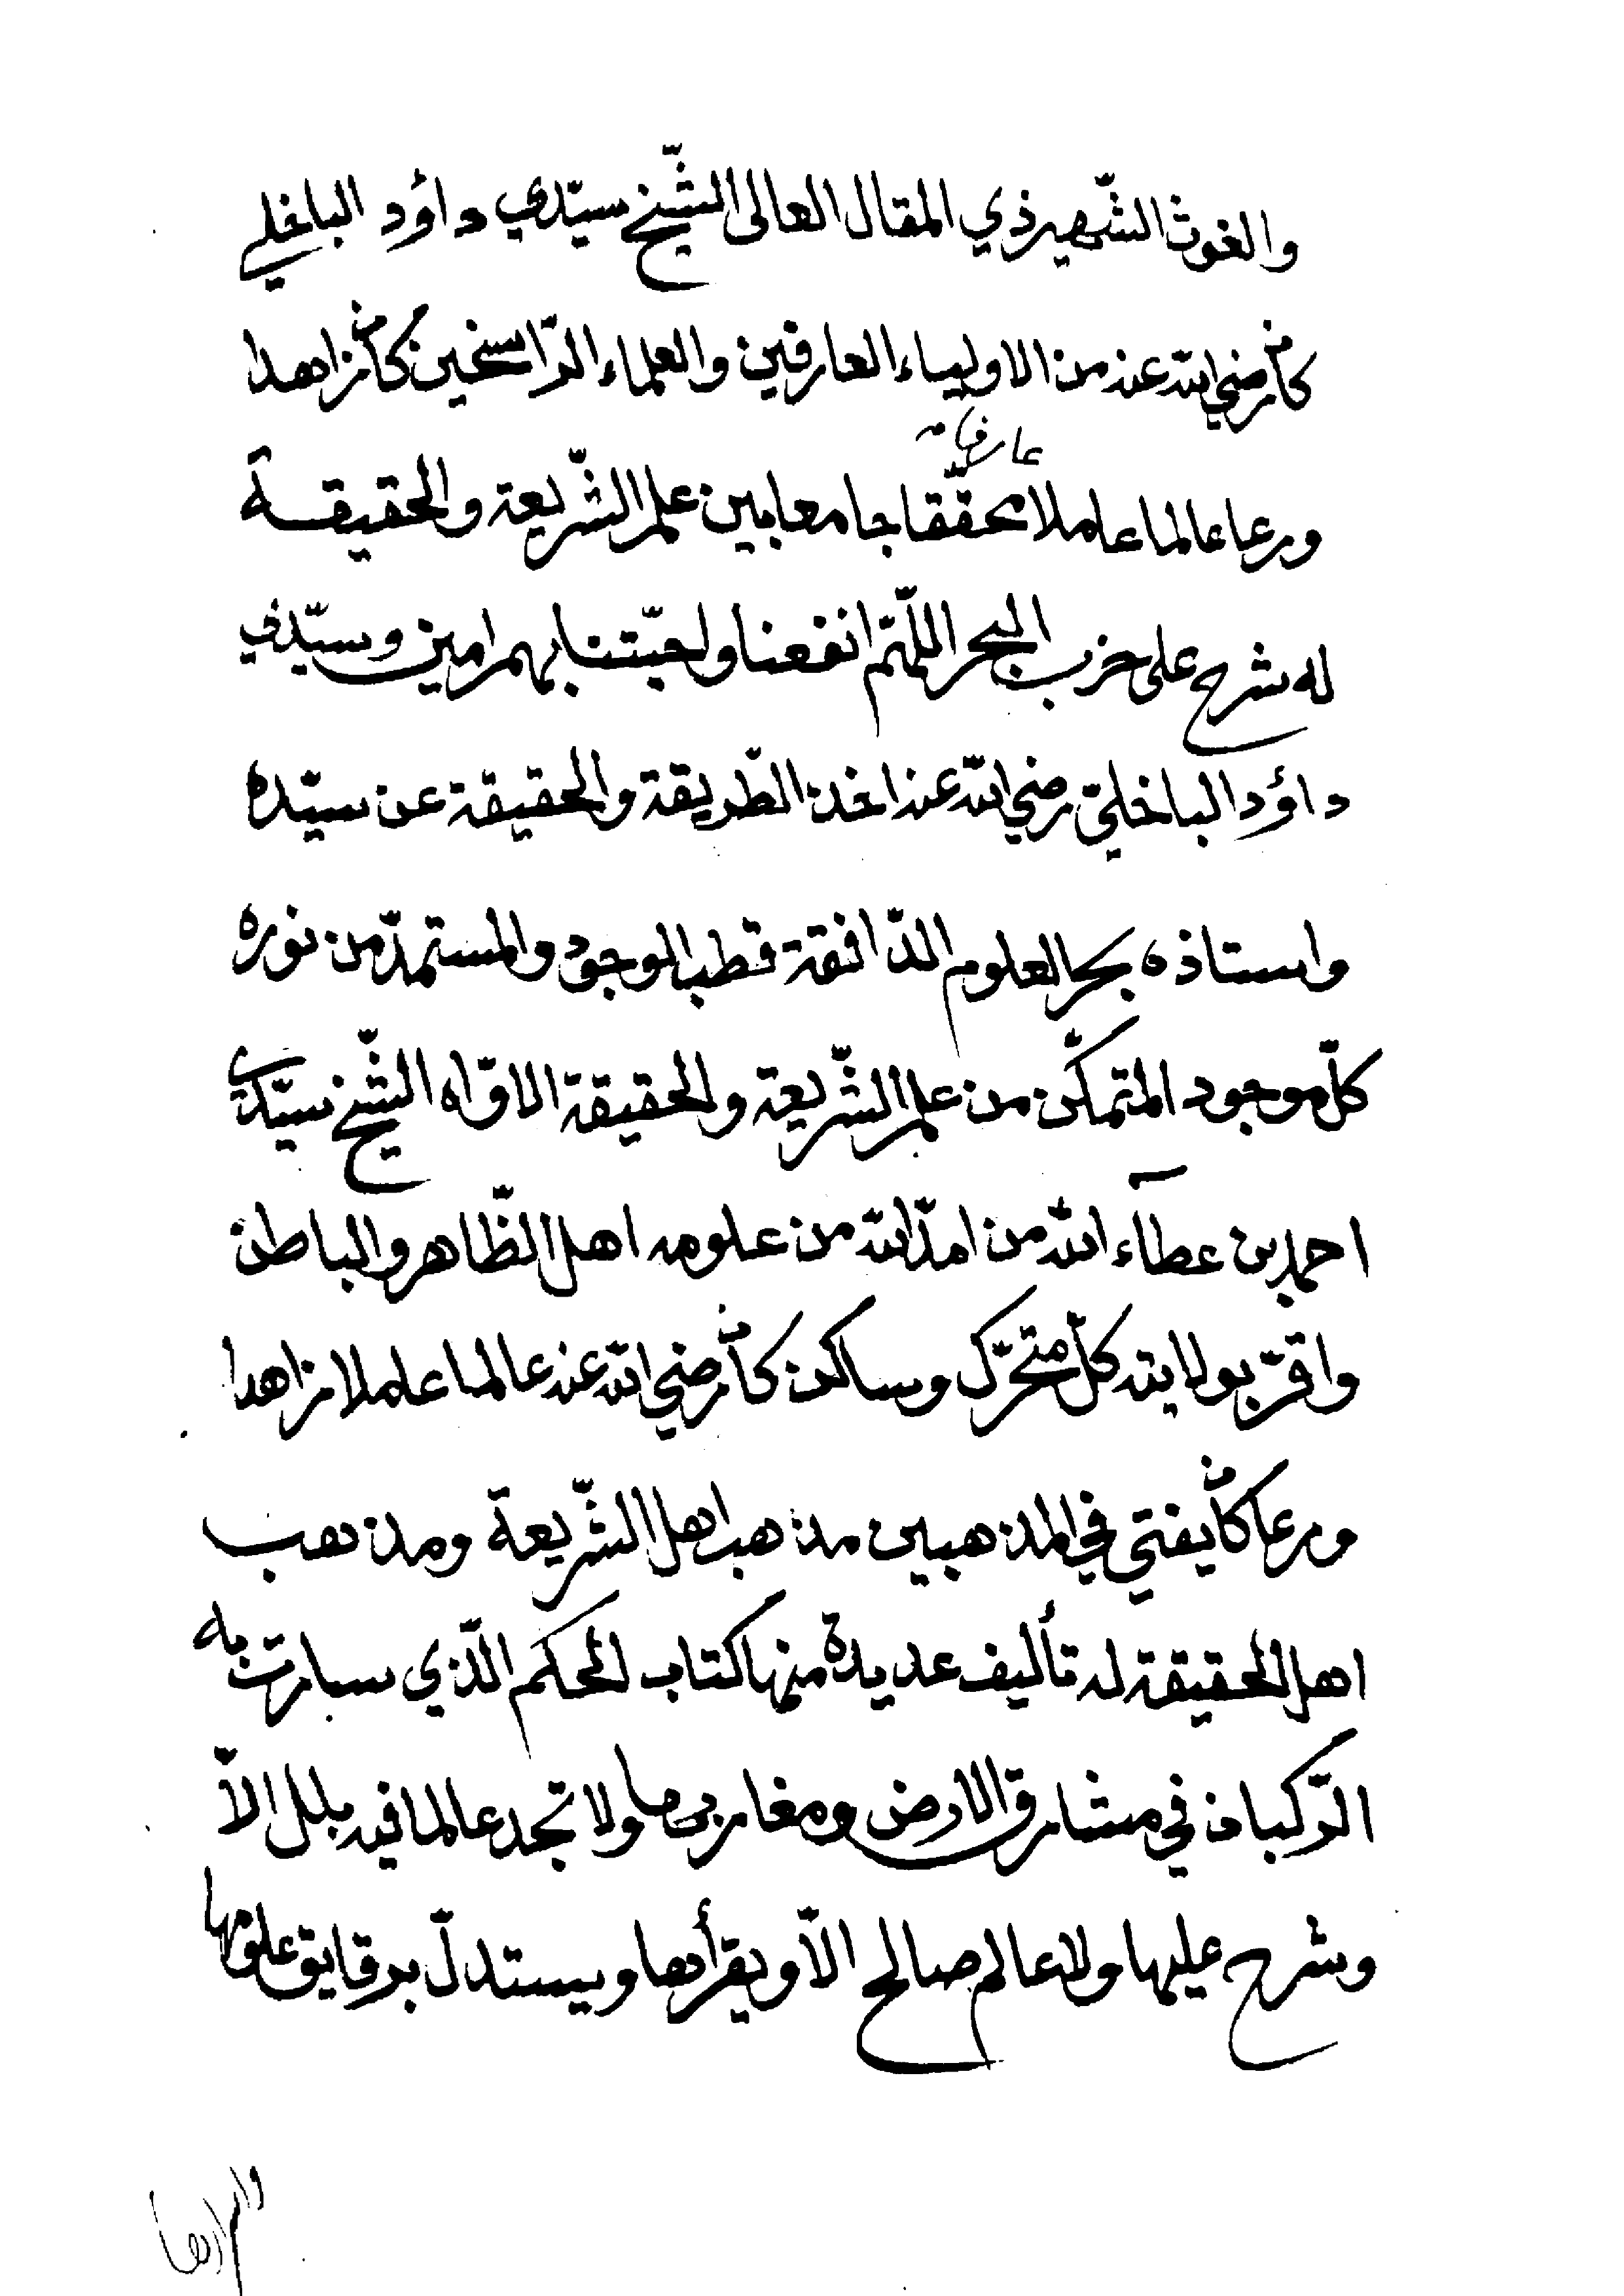 والغوث الشّهير ذي المقال العالى الشّيخ سيّدي داؤد الباخلي
كان رضي الله عنه من الاولياء العارفين والعلماء الرّاسخين كان زاهدا
عارفا
ورعا عالما عاملا محقّقا جامعا بين علم الشّريعة والحقيقة
له شرح على حزب البحر اللّهمّ انفعنا ولمحبّتنا بهم امين وسيّدي
داؤد الباخليّ رضي الله عنه اخذ الطّريقة والحقيقة عن سيّده
واستاذه بحر العلوم الدّافقة قطب الوجود والمستمدّ من نوره
كلّ موجود المتمكّن من علم الشّريعة والحقيقة الاوّاه الشّيخ سيّدي
احمد بن عطآء الله من امدّ الله من علومه اهل الظّاهر والباطن
واقرّ بولايته كلّ متحرّك وساكن كان رضي الله عنه عالما عاملا زاهدا
ورعا كان يفتي في المذهبين مذهب اهل الشّريعة ومذهب
اهل الحقيقة له تأليف عديدة منها كتاب الحكم الّذي سارت به
الرّكبان في مشارق الارض ومغاربها ولا تجد عالما فيه بلل الاّ
وشرح عليها ولا عالم صالح الاّ ويقرأها ويستدلّ برقايق علومها